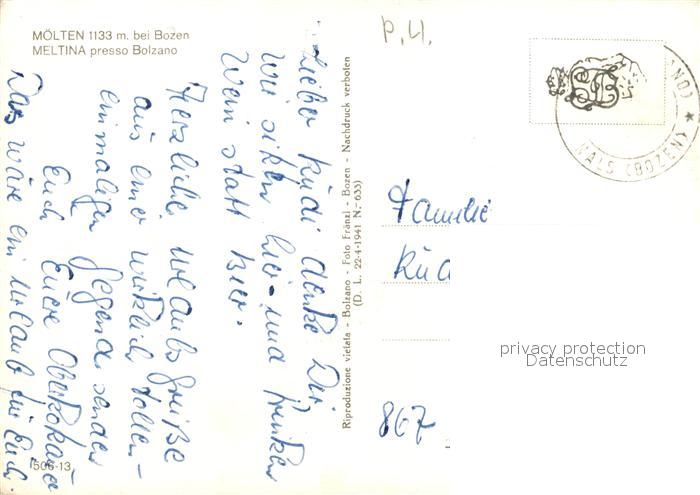 MÖLTEN 1133 m. bei Bozen
MELTINA presso Bolzano
P.U.
Lieber Rudi denke Dir
wir sitzen hier und trinken
Wein statt Bier.
Herzliche Urlaubsgrüße
aus einer wirklich tollen -
einmaligen Gegend senden
Euch Euere
Das wäre ein Urlaub für Euch.
506-13
Riproduzione vietata - Bolzano - Foto Fränzl - Bozen - Nachdruck verboten
(D. L. 22-4-1941 N. 633)
NALS (BOZEN) *
Familie
Rud
867
privacy protection
Datenschutz